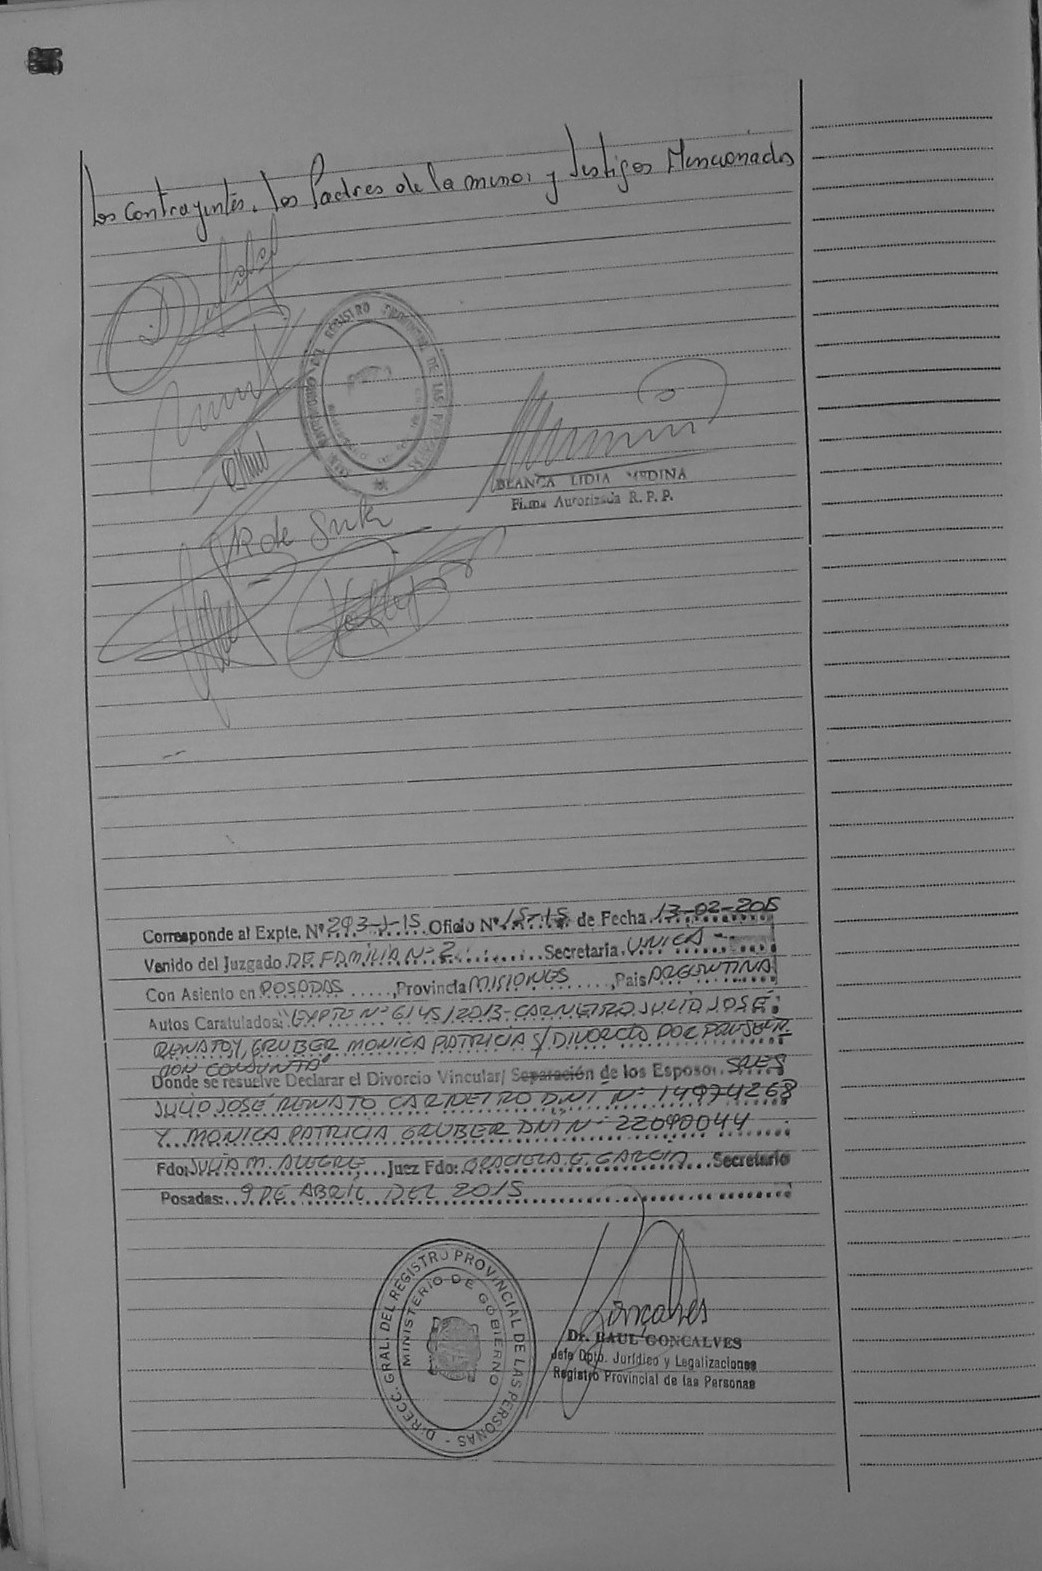 Los Contrayentes, los Padres de la menor y testigos Mencionados
R de Gruber
BLANCA LIDIA MEDINA
Firma Autorizada R. P. P.
Corresponde al Expte. Nº 293-J-15 Oficio Nº 15-15 de Fecha 13-02-2015
Venido del Juzgado DE FAMILIA Nº 2 Secretaria UNICA
Con Asiento en POSADAS, Provincia MISIONES, Pais ARGENTINA
Autos Caratulados: "EXPTE Nº 6145/2013-CARNEIRO JULIO JOSÉ
RENATO Y GRUBER MONICA PATRICIA S/ DIVORCIO POR PRESEN.
CION CONJUNTA"
Donde se resuelve Declarar el Divorcio Vincular/ Separación de los Esposos, SRES
JULIO JOSÉ RENATO CARNEIRO DNI Nº 14974268
Y MONICA PATRICIA GRUBER DNI Nº 22090044
Fdo: JULIA M. ALEGRE Juez Fdo: GRACIELA E. GARCIA Secretario
Posadas: 9 DE ABRIL DEL 2015
DIRECC. GRAL. DEL REGISTRO PROVINCIAL DE LAS PERSONAS -
MINISTERIO DE GOBIERNO
Gonçalves
Dr. RAUL GONCALVES
Jefe Dpto. Jurídico y Legalizaciones
Registro Provincial de las Personas